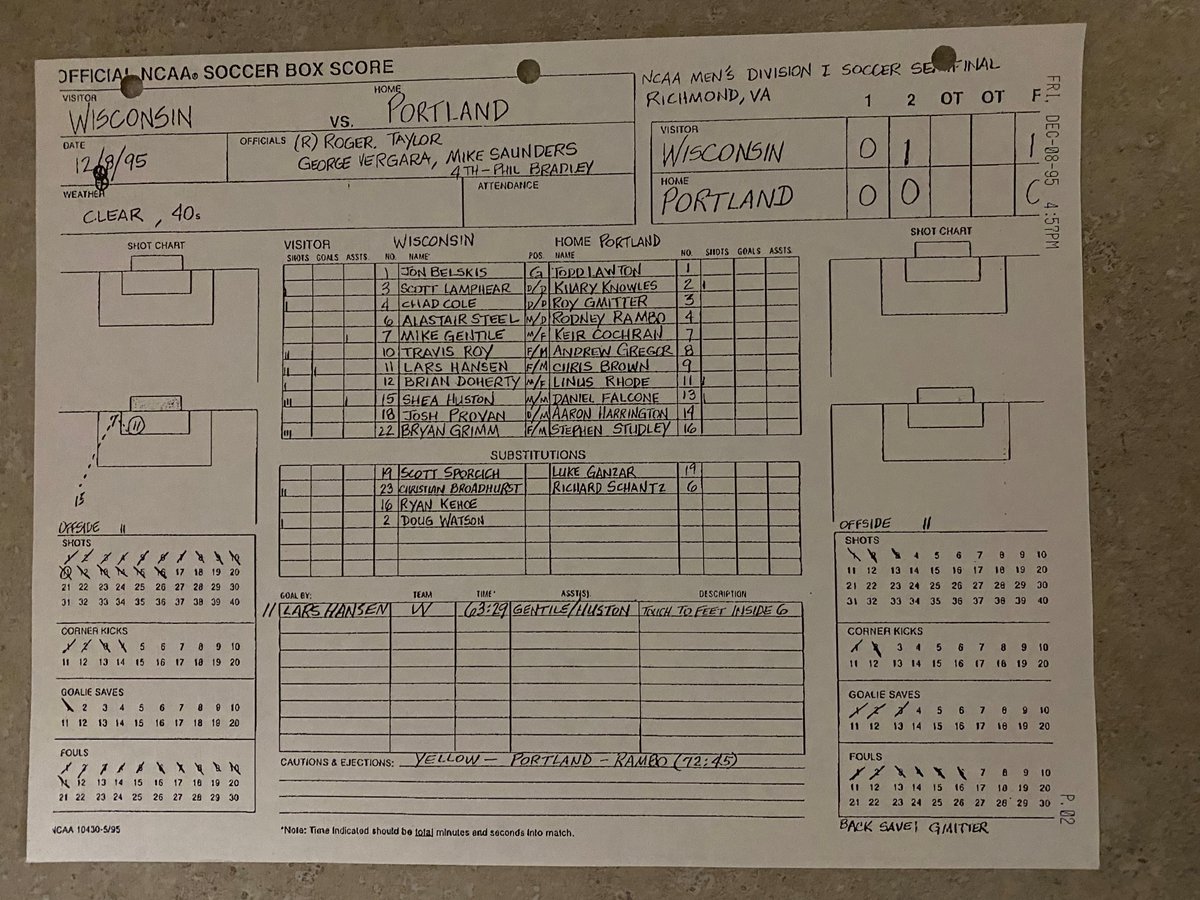 OFFICIAL NCAA® SOCCER BOX SCORE
VISITOR HOME
WISCONSIN VS. PORTLAND
DATE
12/8/95
OFFICIALS (R) ROGER TAYLOR
GEORGE VERGARA, MIKE SAUNDERS
4TH - PHIL BRADLEY
WEATHER
CLEAR, 40s
ATTENDANCE
NCAA MEN'S DIVISION I SOCCER SEMIFINAL
RICHMOND, VA
1 2 OT OT F
VISITOR
WISCONSIN 0 1 1
HOME
PORTLAND 0 0 0
FRI, DEC-08-95 4:57PM
SHOT CHART
VISITOR WISCONSIN HOME PORTLAND
SHOT CHART
SHOTS GOALS ASSTS. NO. NAME POS. NAME NO. SHOTS GOALS ASSTS.
1 JON BELSKIS G TODD LAWTON 1
3 SCOTT LAMPHEAR D/D KHARY KNOWLES 2
4 CHAD COLE D/D ROY GMITTER 3
6 ALASTAIR STEEL M/D RODNEY RAMBO 4
7 MIKE GENTILE M/F KEIR COCHRAN 7
10 TRAVIS ROY F/M ANDREW GREGOR 8
11 LARS HANSEN F/M CHRIS BROWN 9
12 BRIAN DOHERTY M/F LINUS RHODE 11
15 SHEA HUSTON M/M DANIEL FALCONE 13
18 JOSH PROVAN D/M AARON HARRINGTON 14
22 BRYAN GRIMM F/M STEPHEN STUDLEY 16
7 11
15
SUBSTITUTIONS
19 SCOTT SPORCICH LUKE GANZAR 19
23 CHRISTIAN BROADHURST RICHARD SCHANTZ 6
16 RYAN KEHOE
2 DOUG WATSON
OFFSIDE II
SHOTS
1 2 3 4 5 6 7 8 9 10
11 12 13 14 15 16 17 18 19 20
21 22 23 24 25 26 27 28 29 30
31 32 33 34 35 36 37 38 39 40
CORNER KICKS
1 2 3 4 5 6 7 8 9 10
11 12 13 14 15 16 17 18 19 20
GOALIE SAVES
1 2 3 4 5 6 7 8 9 10
11 12 13 14 15 16 17 18 19 20
FOULS
1 2 3 4 5 6 7 8 9 10
11 12 13 14 15 16 17 18 19 20
21 22 23 24 25 26 27 28 29 30
NCAA 10430-5/95
GOAL BY: TEAM TIME* ASST(S). DESCRIPTION
11 LARS HANSEN W 63:29 GENTILE/HUSTON TOUCH TO FEET INSIDE 6
CAUTIONS & EJECTIONS: YELLOW - PORTLAND - RAMBO (72:45)
*Note: Time indicated should be total minutes and seconds into match.
OFFSIDE II
SHOTS
1 2 3 4 5 6 7 8 9 10
11 12 13 14 15 16 17 18 19 20
21 22 23 24 25 26 27 28 29 30
31 32 33 34 35 36 37 38 39 40
CORNER KICKS
1 2 3 4 5 6 7 8 9 10
11 12 13 14 15 16 17 18 19 20
GOALIE SAVES
1 2 3 4 5 6 7 8 9 10
11 12 13 14 15 16 17 18 19 20
FOULS
1 2 3 4 5 6 7 8 9 10
11 12 13 14 15 16 17 18 19 20
21 22 23 24 25 26 27 28 29 30
BACK SAVE: GMITTER
P.02